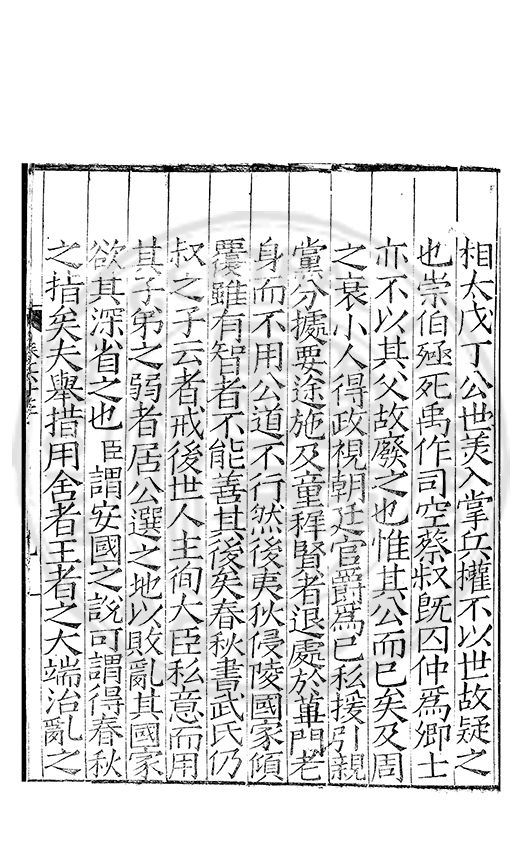 相太戊丁公世美入掌兵權不以世故疑之
也崇伯殛死禹作司空蔡叔旣囚仲爲卿士
亦不以其父故廢之也惟其公而已矣及周
之衰小人得政視朝廷官爵爲己私援引親
黨分據要途施及童穉賢者退處於蓽門老
身而不用公道不行然後夷狄侵陵國家傾
覆雖有智者不能善其後矣春秋書武氏仍
叔之子云者戒後世人主徇大臣私意而用
其子弟之弱者居公選之地以敗亂其國家
欲其深省之也 臣謂安國之說可謂得春秋
之指矣夫舉措用舍者王者之大端治亂之